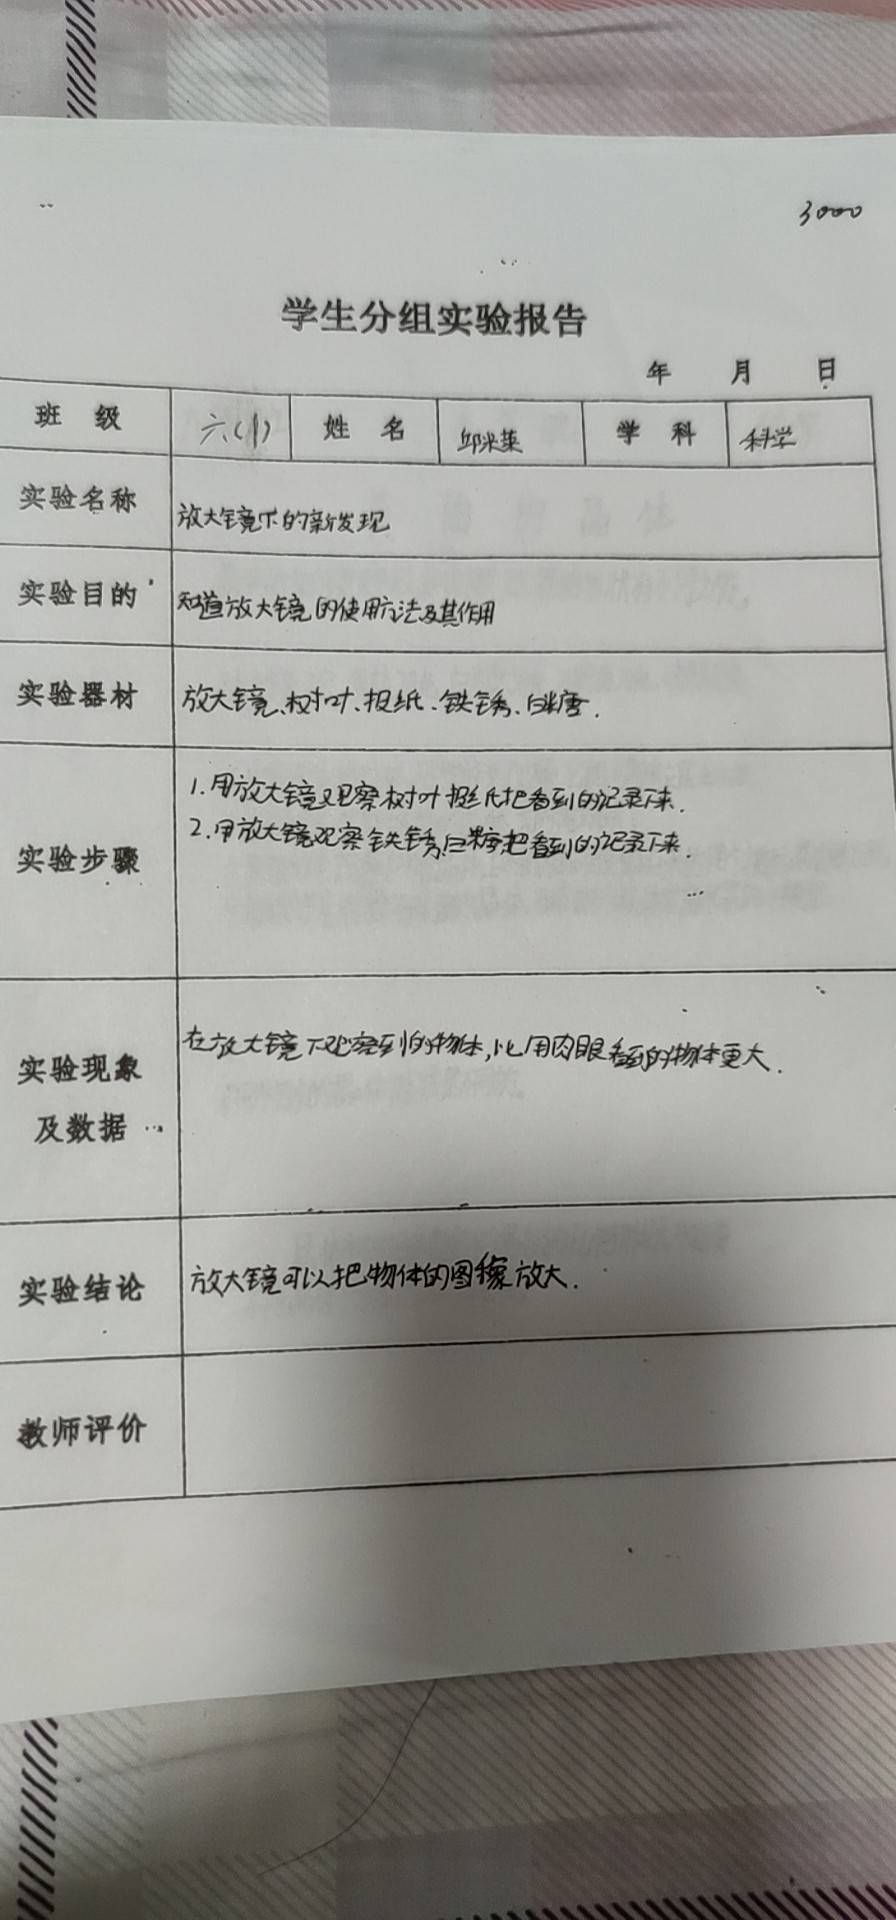 3000
学生分组实验报告
年 月 日
班 级 六(1) 姓 名 邱米莱 学 科 科学
实验名称 放大镜下的新发现
实验目的 知道放大镜的使用方法及其作用
实验器材 放大镜、树叶、报纸、铁锈、白糖.
实验步骤
1.用放大镜观察树叶报纸把看到的记录下来.
2.用放大镜观察铁锈白糖把看到的记录下来.
实验现象
及数据
在放大镜下观察到的物体,比用肉眼看到的物体更大.
实验结论 放大镜可以把物体的图像放大.
教师评价